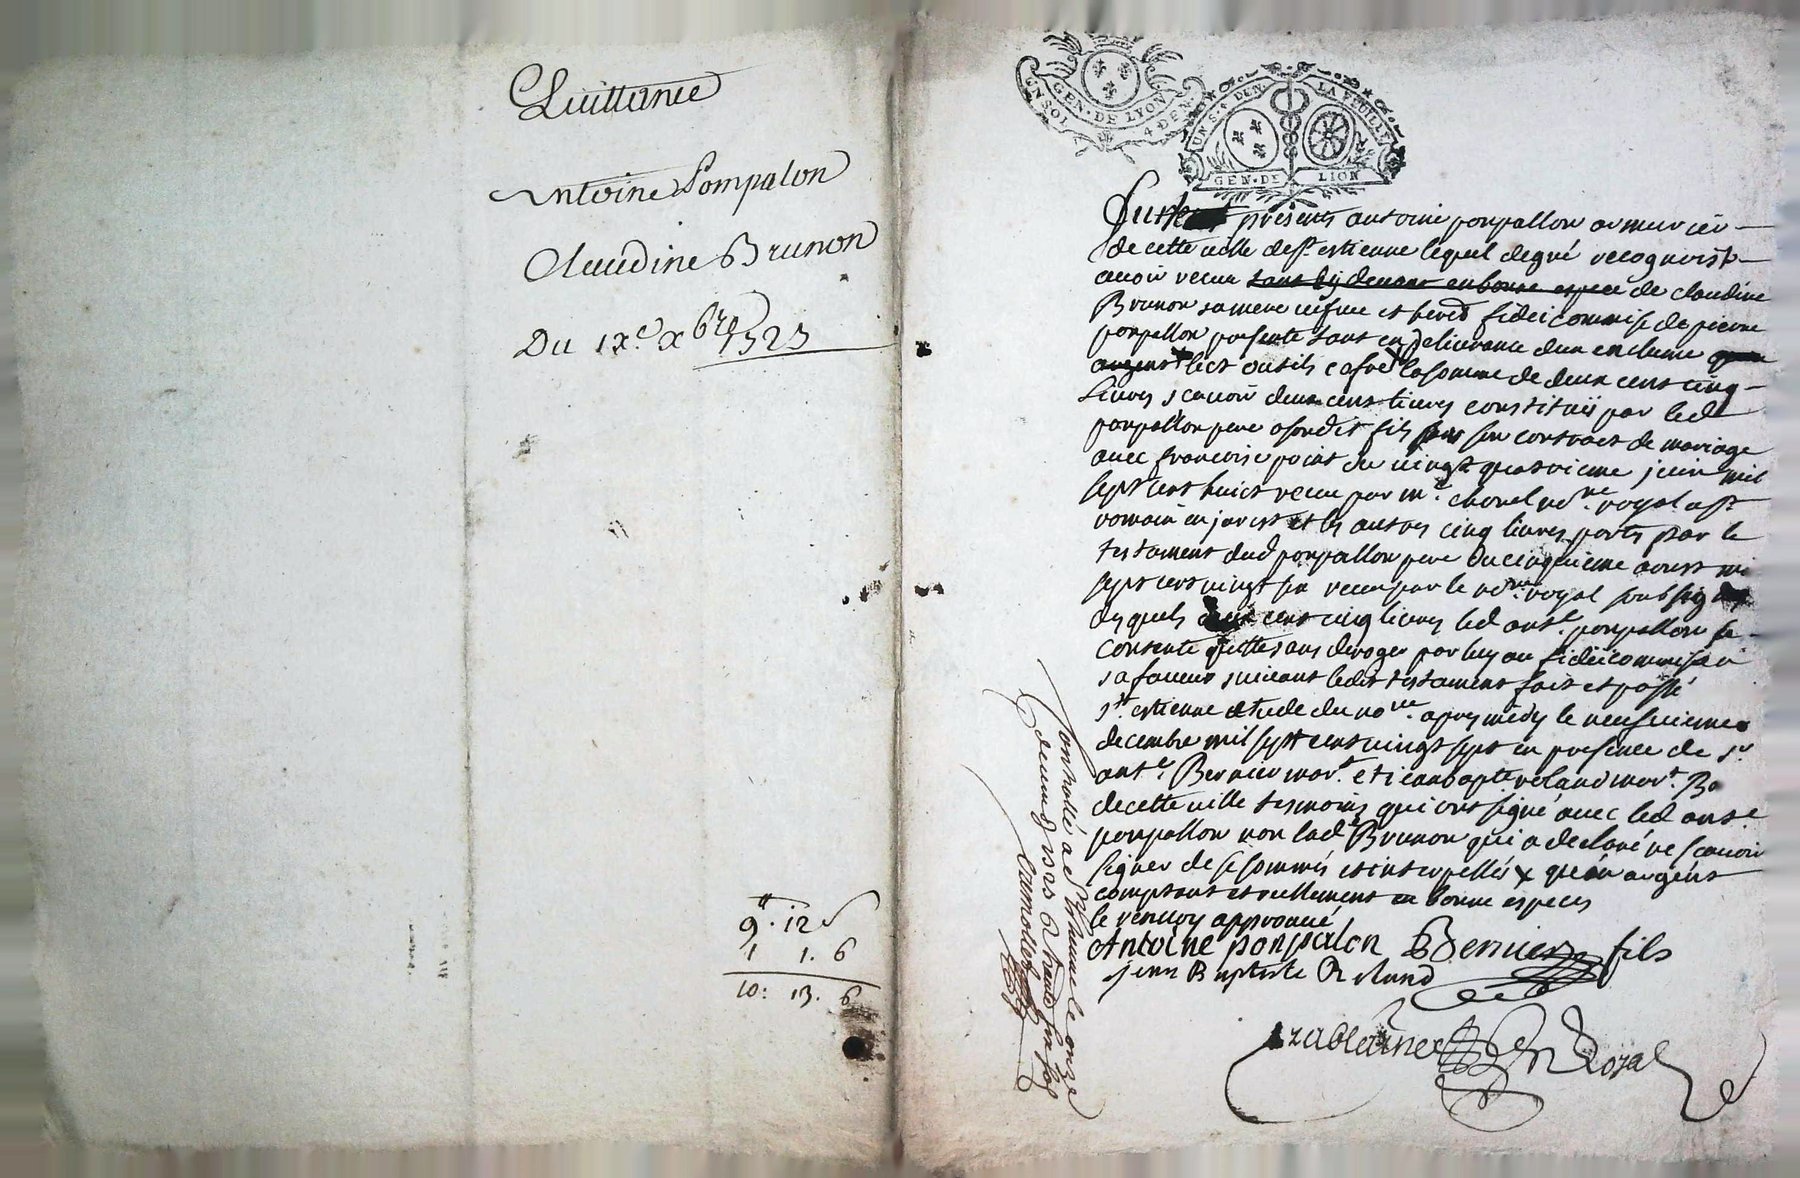 Quittance
Antoine Pompalon
Claudine Brunon
Du ix.e xbre
9# . 12 s
1 1. 6
10: 13. 6
UN SOL 4 DEN
GEN·DE LYON
UN S. DEN. LA FEUILLE
GEN·DE LION
presents antoine ponpallon armurier
de cette ville de st estienne lequel de gré recognoist
avoir receu de claudine
Brunon sa mere vefve et herede fideicommise de pierre
ponpallon presente sans en delivrance d'un enclume
et outils la somme de deux cens cinq
livres scavoir deux cens livres constitués par led
ponpallon pere a sondit fils son contract de mariage
avec francoise point du vingt quatrieme juin mil
sept cens huict receu par m.e chorel no.re royal a st
romain en jarest et les autres cinq livres portés par le
testament dud ponpallon pere du cinquieme aoust mil
sept cens vingt six receu par le no.re royal soubsigné
desquels deux cens cinq livres led ant.e ponpallon se
contente quitte sans deroger par luy au fideicommis a
sa faveur suivant ledit testament fait et passé
st. estienne etude du no.re apres midy le neufvieme
decembre mil sept cens vingt sept en presence de s.r
ant.e Bernier mar.d et jean bapte roland mar.d
de cette ville tesmoins qui ont signé avec led ant.e
ponpallon non lad.e Brunon qui a declaré ne scavoir
signer de ce sommés et interpellés x que en argent
comptant et reellement en bonne especes
le renvoy approuvé
Antoine ponpalon Bernier fils
jean Baptiste Roland
Royal
Controllé a St Estienne le onze